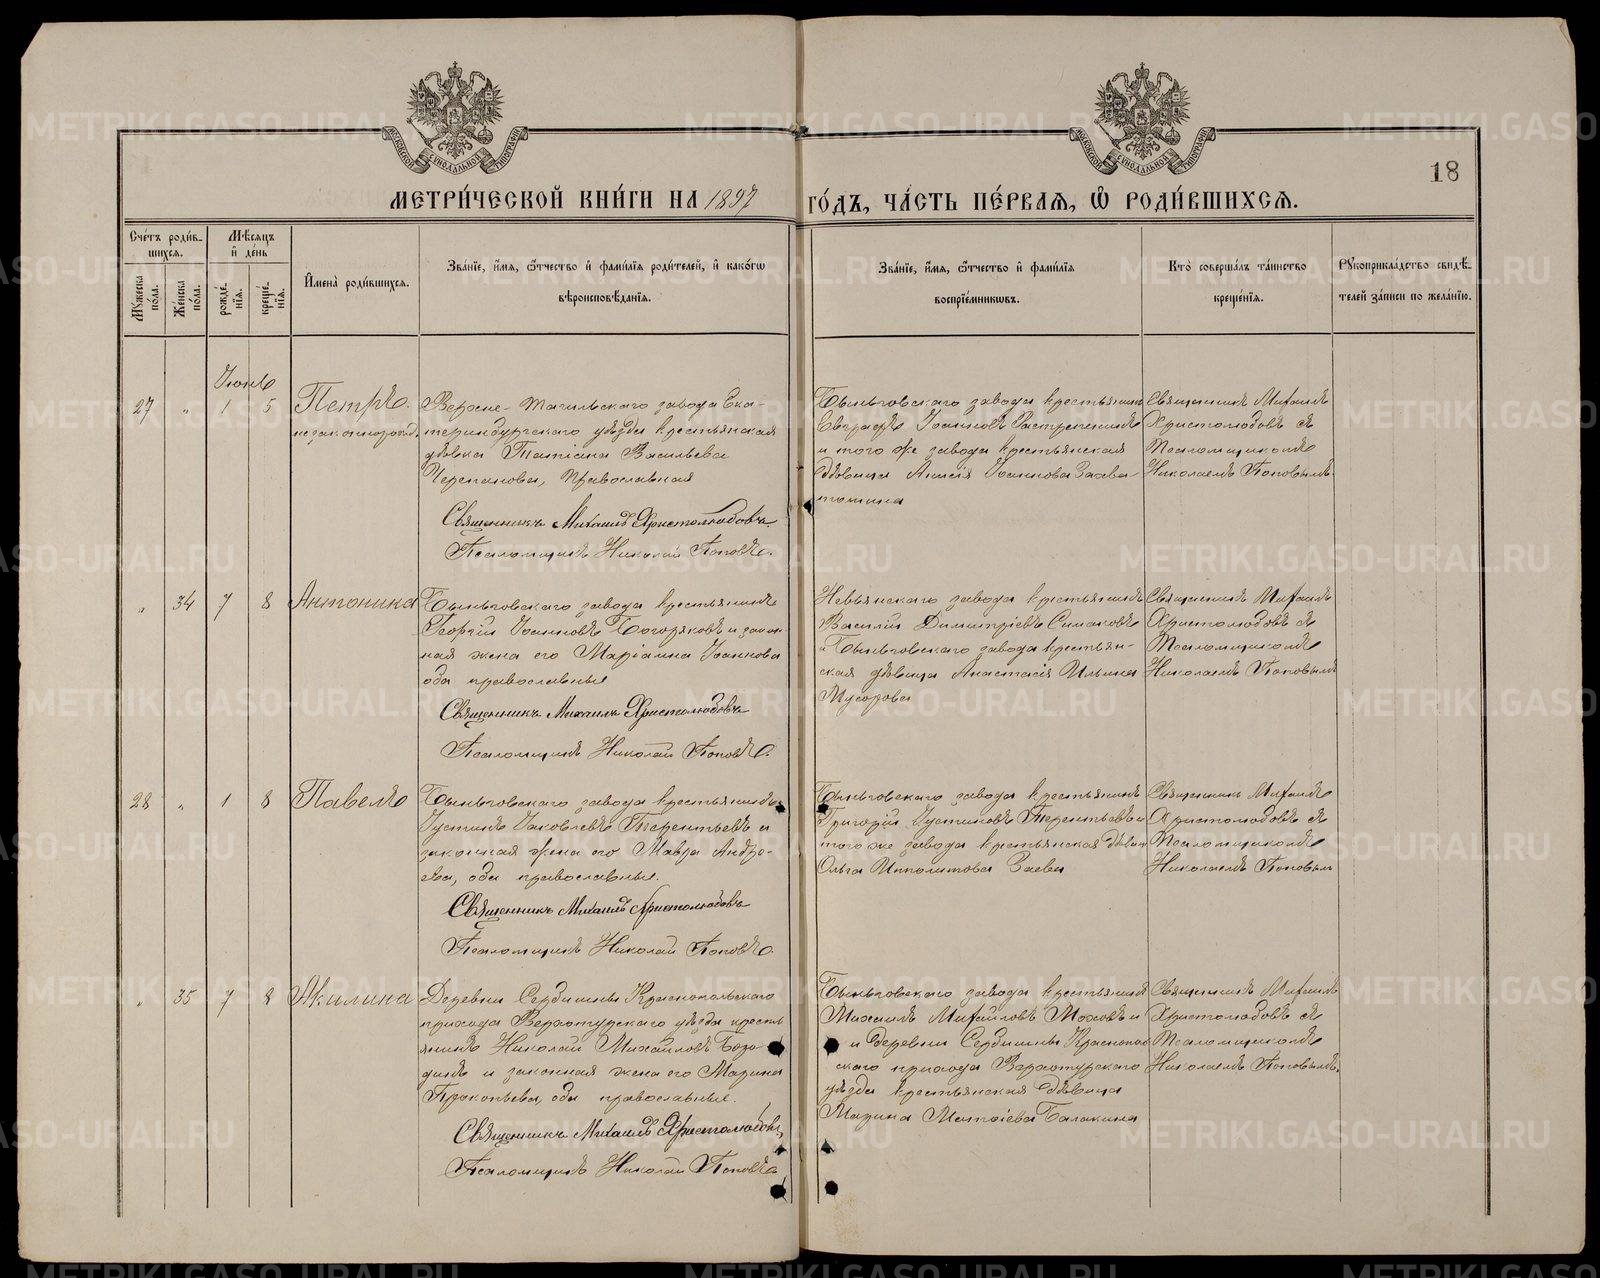 18
МЕТРИ́ЧЕСКОЙ КНИ́ГИ НА 1897 ГО́ДЪ, ЧА́СТЬ ПЕ́РВАЯ, Ѡ҆ РОДИ́ВШИХСЯ.
Сче́тъ роди́в-
шихся.
Мꙋжеска по́ла.
Же́нска по́ла.
Мѣ́сяцъ и҆ де́нь
рожде́нїя.
креще́нїя.
И҆мена̀ роди́вшихся.
Зва́нїе, и҆́мя, ѻ҆́тчество и҆ фами́лїя роди́телей, и҆ како́гѡ
вѣроисповѣ́данїя.
Зва́нїе, и҆́мя, ѻ҆́тчество и҆ фами́лїя
воспрїе́мникѡвъ.
Кто̀ соверша́лъ та́инство
креще́нїя.
Рꙋкоприкла́дство свидѣ́-
телей за́писи по жела́нїю.
Іюнь
27 " 1 5
Петръ
незаконнорожд.
Верхне-Тагильскаго завода Ека-
теринбургскаго уѣзда крестьянская
дѣвка Татіана Васильева
Черепанова, православная
Священникъ Михаилъ Христолюбовъ
Псаломщикъ Николай Поповъ.
Быньговскаго завода крестьянинъ
Евграфъ Іоанновъ
и того же завода крестьянская
дѣвица Іоаннова
Священникъ Михаилъ
Христолюбовъ съ
Псаломщикомъ
Николаемъ Поповымъ
" 34 7 8
Антонина
Быньговскаго завода крестьянинъ
Георгій Іоанновъ Богоряковъ и закон-
ная жена его Маріамна Іоаннова
оба православные
Священникъ Михаилъ Христолюбовъ
Псаломщикъ Николай Поповъ.
Невьянскаго завода крестьянинъ
Василій Димитріевъ Симаковъ
и Быньговскаго завода крестьян-
ская дѣвица Анастасія Ильина
Мусорова
Священникъ Михаилъ
Христолюбовъ съ
Псаломщикомъ
Николаемъ Поповымъ
28 " 1 8
Павелъ
Быньговскаго завода крестьянинъ
Іустинъ Іаковлевъ Терентьевъ и
законная жена его Мавра Андре-
ева, оба православные.
Священникъ Михаилъ Христолюбовъ
Псаломщикъ Николай Поповъ.
Быньговскаго завода крестьянинъ
Григорій Іустиновъ Терентьевъ и
того же завода крестьянская дѣвица
Ольга Ипполитова Заева
Священникъ Михаилъ
Христолюбовъ съ
Псаломщикомъ
Николаемъ Поповым
" 35 7 8
Акилина
Деревни Сербишны Краснопольскаго
прихода Верхотурскаго уѣзда кресть
янинъ Николай Михайловъ
и законная жена его Марина
Прокопьева, оба православные.
Священникъ Михаилъ Христолюбовъ
Псаломщикъ Николай Поповъ.
Быньговскаго завода крестьянинъ
Михаилъ Михайловъ Моховъ и
и деревни Сербишны Краснополь
скаго прихода Верхотурскаго
уѣзда крестьянская дѣвица
Марина Матѳіева Балакина
Священникъ Михаилъ
Христолюбовъ съ
Псаломщикомъ
Николаемъ Поповымъ.
METRIKI.GASO-URAL.RU